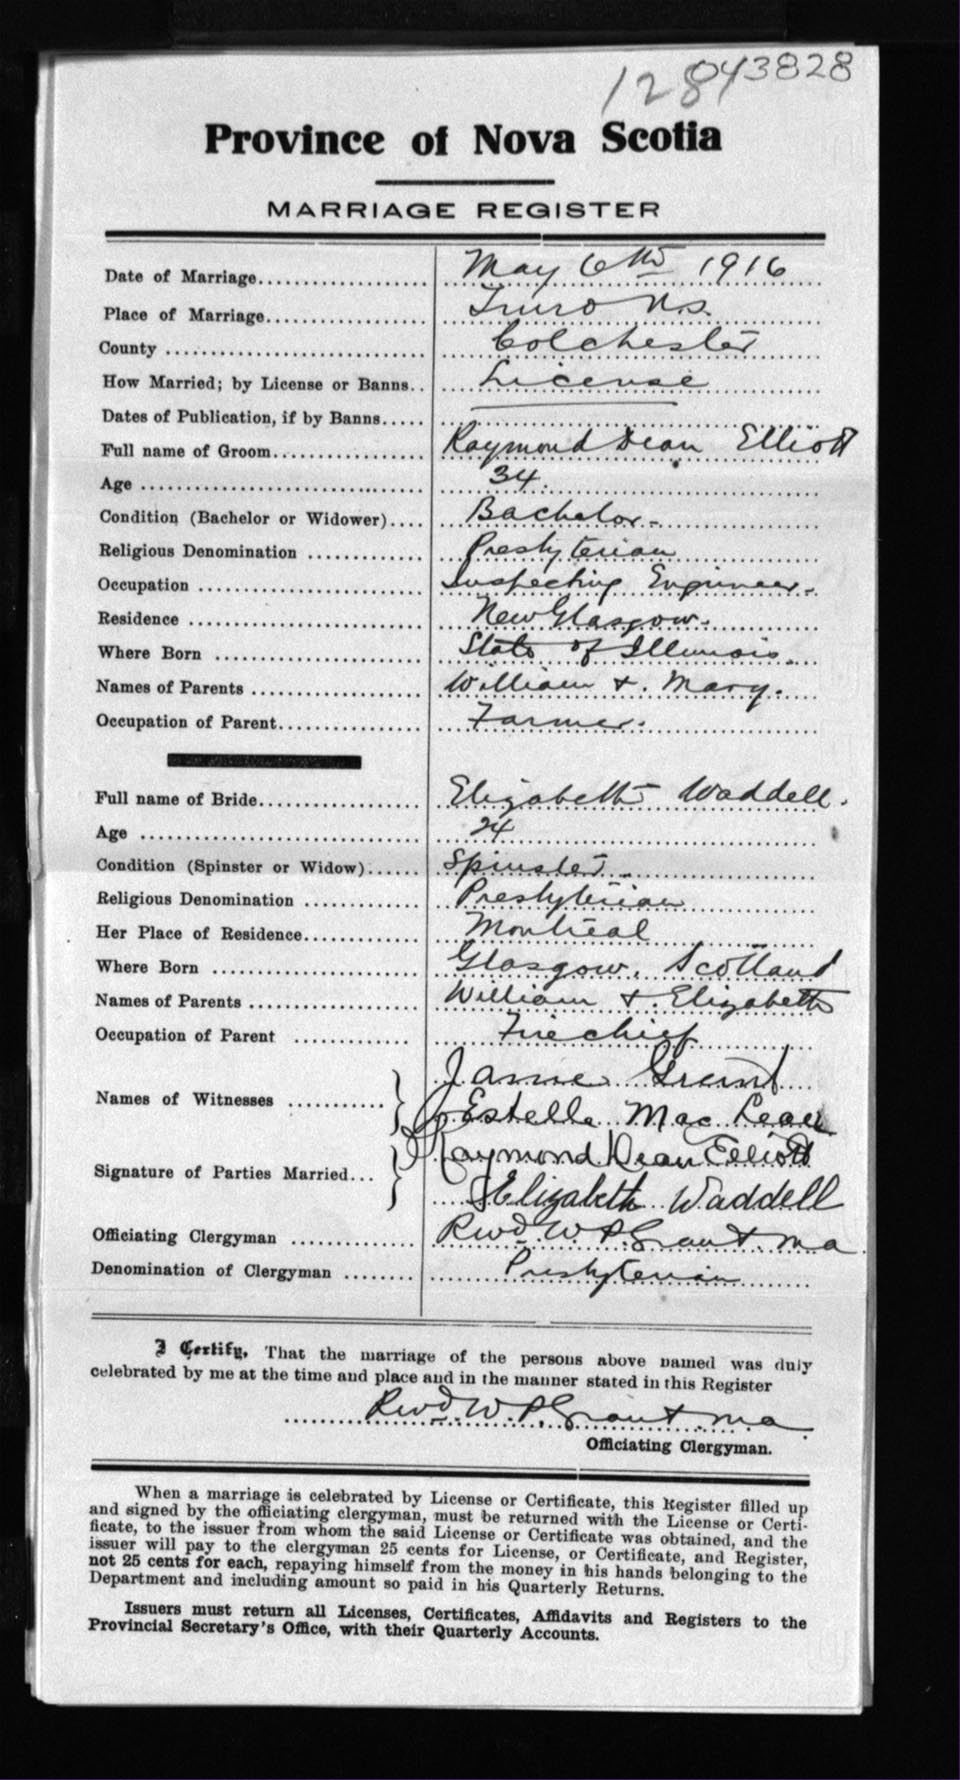 1284 3828
Province of Nova Scotia
MARRIAGE REGISTER
Date of Marriage.................... May 6th 1916
Place of Marriage................... Truro N.S.
County .............................. Colchester
How Married; by License or Banns.. License
Dates of Publication, if by Banns.....
Full name of Groom.................. Raymond Dean Elliott
Age ................................. 34.
Condition (Bachelor or Widower).... Bachelor.
Religious Denomination ............. Presbyterian
Occupation .......................... Inspecting Engineer.
Residence ........................... New Glasgow.
Where Born ........................ State of Illinois.
Names of Parents .................... William & Mary.
Occupation of Parent................. Farmer.
Full name of Bride................... Elizabeth Waddell.
Age ................................. 24
Condition (Spinster or Widow)...... Spinster.
Religious Denomination .............. Presbyterian
Her Place of Residence.............. Montreal
Where Born ......................... Glasgow, Scotland
Names of Parents .................... William & Elizabeth
Occupation of Parent .............. Fire chief
Janie Grant
Names of Witnesses ...........
Estella MacLean
Raymond Dean Elliott
Signature of Parties Married...
Elizabeth Waddell
Officiating Clergyman ............... Revd. W. P. Grant. M.A.
Denomination of Clergyman ........ Presbyterian
I Certify, That the marriage of the persons above named was duly
celebrated by me at the time and place and in the manner stated in this Register
Revd. W. P. Grant M.A.
Officiating Clergyman.
When a marriage is celebrated by License or Certificate, this Register filled up
and signed by the officiating clergyman, must be returned with the License or Certi-
ficate, to the issuer from whom the said License or Certificate was obtained, and the
issuer will pay to the clergyman 25 cents for License, or Certificate, and Register,
not 25 cents for each, repaying himself from the money in his hands belonging to the
Department and including amount so paid in his Quarterly Returns.
Issuers must return all Licenses, Certificates, Affidavits and Registers to the
Provincial Secretary's Office, with their Quarterly Accounts.